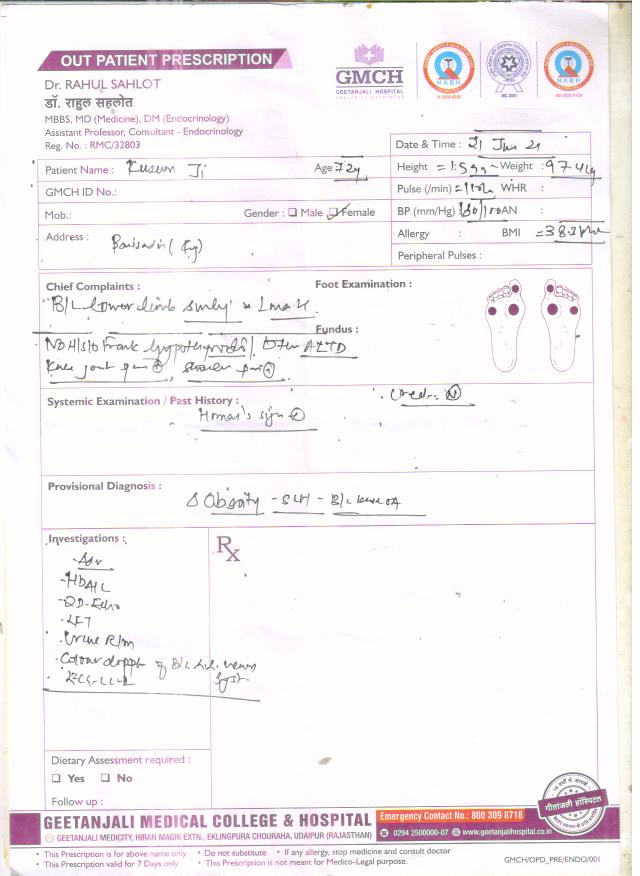 OUT PATIENT PRESCRIPTION
GMCH
GEETANJALI HOSPITAL
NABH
NABH
Dr. RAHUL SAHLOT
डॉ. राहुल सहलोत
MBBS, MD (Medicine), DM (Endocrinology)
Assistant Professor, Consultant - Endocrinology
Reg. No. : RMC/32803
Date & Time : 21 Jun 21
Patient Name : Kusum Ji
Age 72y
Height = 1.59m Weight : 97.4 kg
GMCH ID No.:
Pulse (/min) = WHR :
Mob.:
Gender : Male Female
BP (mm/Hg) : 180/100 AN :
Address :
Allergy : BMI = 38.3
Peripheral Pulses :
Chief Complaints :
Foot Examination :
B/L lower limb
Fundus :
Frank hypothyroidi
Knee joint pain +
Systemic Examination / Past History :
Homan's sign
Provisional Diagnosis :
Δ Obesity - SCH - B/L knee OA
Investigations :
Rx
HbA1c
2D-Echo
LFT
Urine R/m
Colour doppl of B/L L.L. venous
Syst.
Dietary Assessment required :
Yes No
Follow up :
गीतांजली हॉस्पिटल
GEETANJALI MEDICAL COLLEGE & HOSPITAL
Emergency Contact No.: 800 309 8718
GEETANJALI MEDICITY, HIRAN MAGRI EXTN., EKLINGPURA CHOURAHA, UDAIPUR (RAJASTHAN)
0294 2500000-07 www.geetanjalihospital.co.in
• This Prescription is for above name only • Do not substitute • If any allergy, stop medicine and consult doctor
• This Prescription valid for 7 Days only • This Prescription is not meant for Medico-Legal purpose.
GMCH/OPD_PRE/ENDO/001